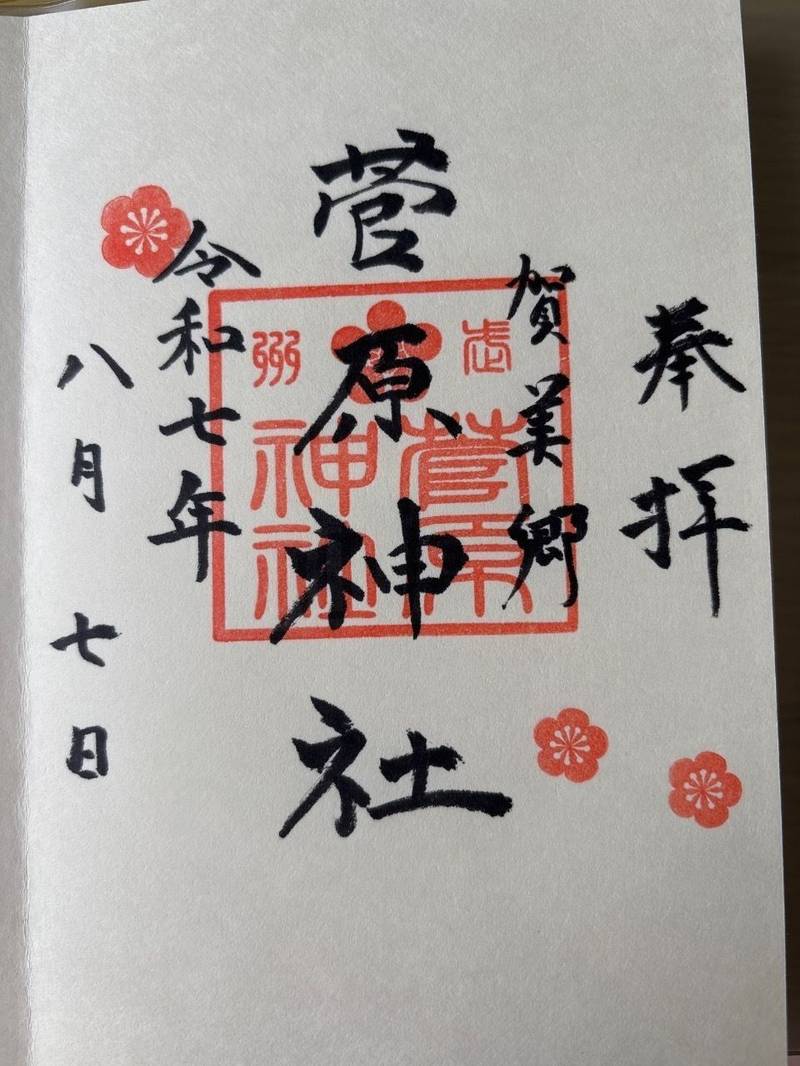 奉拝
賀美郷
菅原神社
武州
菅原
神社
令和七年
八月七日